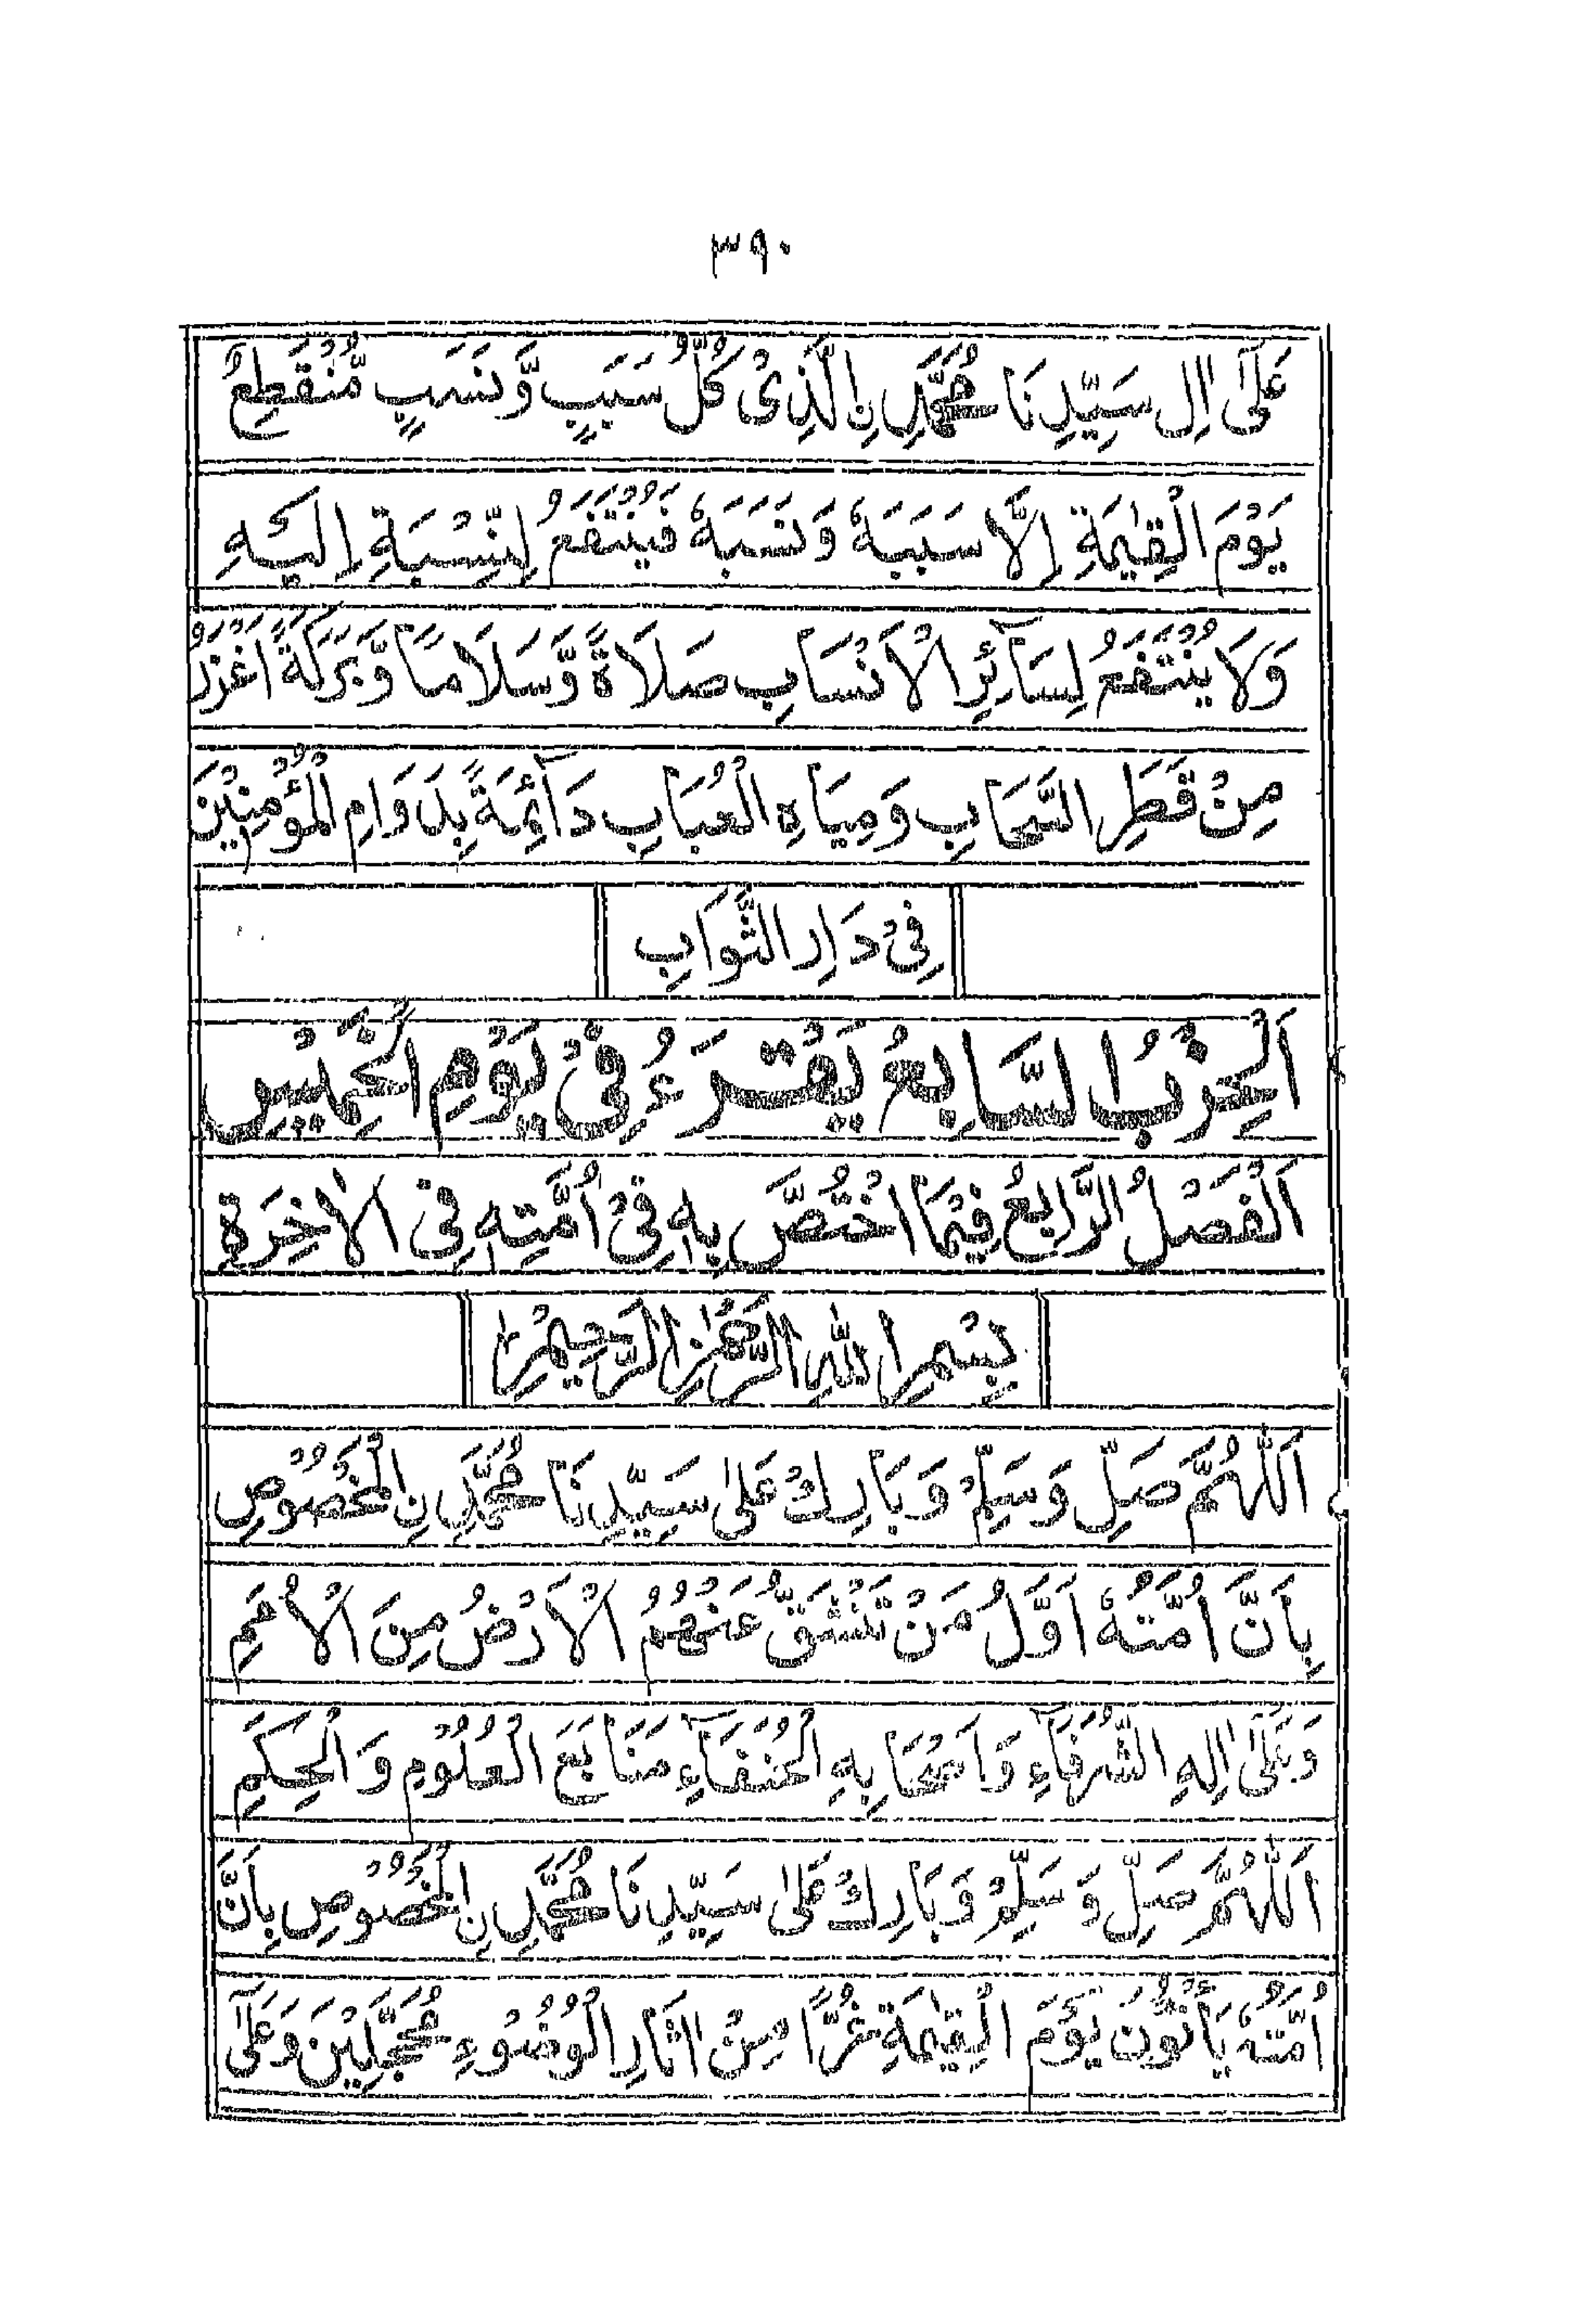 ٣٩٠
عَلٰٓى اٰلِ سَيِّدِنَا مُحَمَّدِ نِ الَّذِىْ كُلُّ سَبَبٍ وَّنَسَبٍ مُّنْقَطِعٌ
يَوْمَ الْقِيٰمَةِ اِلَّا سَبَبَهٗ وَنَسَبَهٗ فَيَنْتَفِعُ لِنِّسْبَةِ اِلَيْهِ
وَلَا يَنْتَفِعُ لِسَآئِرِ الْاَنْسَابِ صَلَاةً وَّسَلَامًا وَّبَرَكَةً اَغْزَرُ
مِنْ قَطَرِ السَّحَابِ وَمِيَاهِ الْعُبَابِ دَآئِمَةً بِدَوَامِ الْمُؤْمِنِيْنَ
فِىْ دَارِ الثَّوَابِ
اَلْحِزْبُ السَّابِعُ يُقْتَرَءُ فِىْ يَوْمِ الْخَمِيْسِ
اَلْفَصْلُ الرَّابِعُ فِيْمَا اخْتُصَّ بِهٖ فِىْ اُمَّتِهٖ فِى الْاٰخِرَةِ
بِسْمِ اللهِ الرَّحْمٰنِ الرَّحِيْمِ
اَللّٰهُمَّ صَلِّ وَسَلِّمْ وَبَارِكْ عَلٰى سَيِّدِنَا مُحَمَّدِ نِ الْمَخْصُوْصِ
بِاَنَّ اُمَّتَهٗ اَوَّلُ مَنْ تَنْشَقُّ عَنْهُمُ الْاَرْضُ مِنَ الْاُمَمِ
وَعَلٰٓى اٰلِهِ الشُّرَفَآءِ وَاَصْحَابِهِ الْحُنَفَآءِ مَنَابِعَ الْعُلُوْمِ وَالْحِكَمِ
اَللّٰهُمَّ صَلِّ وَسَلِّمْ وَبَارِكْ عَلٰى سَيِّدِنَا مُحَمَّدِ نِ الْمَخْصُوْصِ بِاَنَّ
اُمَّتَهٗ يَأْتُوْنَ يَوْمَ الْقِيٰمَةِ غُرًّا مِنْ اٰثَارِ الْوُضُوْءِ مُحَجَّلِيْنَ وَعَلٰٓى